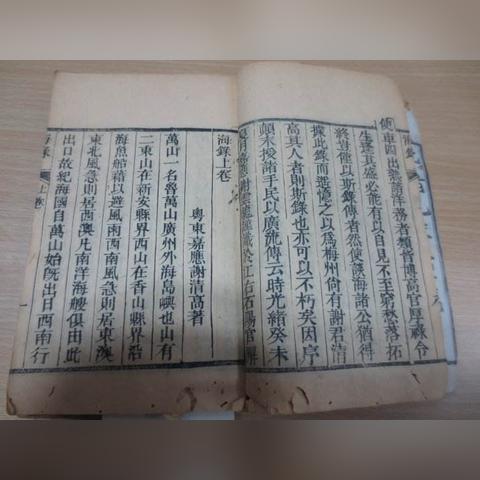 海錄
使車四出熟諳洋務者類皆博高官厚祿令
生逢其盛必能有以自見不至窮愁落拓
終昔僅以斯錄傳者然使談海諸公猶得
據此錄而遡憶之以爲梅州尙有謝君淸
高其人者則斯錄也亦可以不朽矣因序
顛末授諸手民以廣流傳云時光緒癸未
江右
海錄上卷
粵東嘉應謝清高著
萬山一名魯萬山廣州外海島嶼也山有
二東山在新安縣界西山在香山縣界沿
海魚船藉以避風雨西南風急則居東澳
東北風急則居西澳凡南洋海艘俱由此
出口故紀海國自萬山始旣出口西南行
海錄
上卷